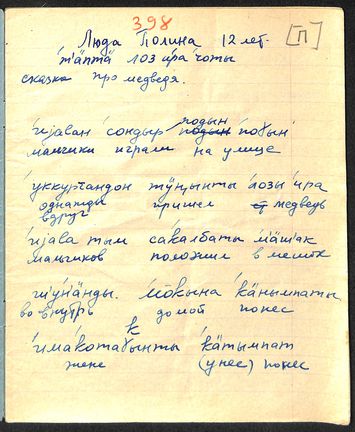 398
Люда Полина 12 лет. [П]
т'ӓптӓ лоз ира чоты
сказка про медведя.
подын
иjаван сондыр подын побын
мальчики играли на улице
уккурчандон тӱңынты лозы ира
однажды пришел медведь
вдруг
иjава тым сакалбаты мӓшак
мальчиков положил в мешок
шӱнӓнды. мōкына кӓнымпаты
во внутрь домой понес
к
имакотабынты кӓтымпат
жене (унес) понес